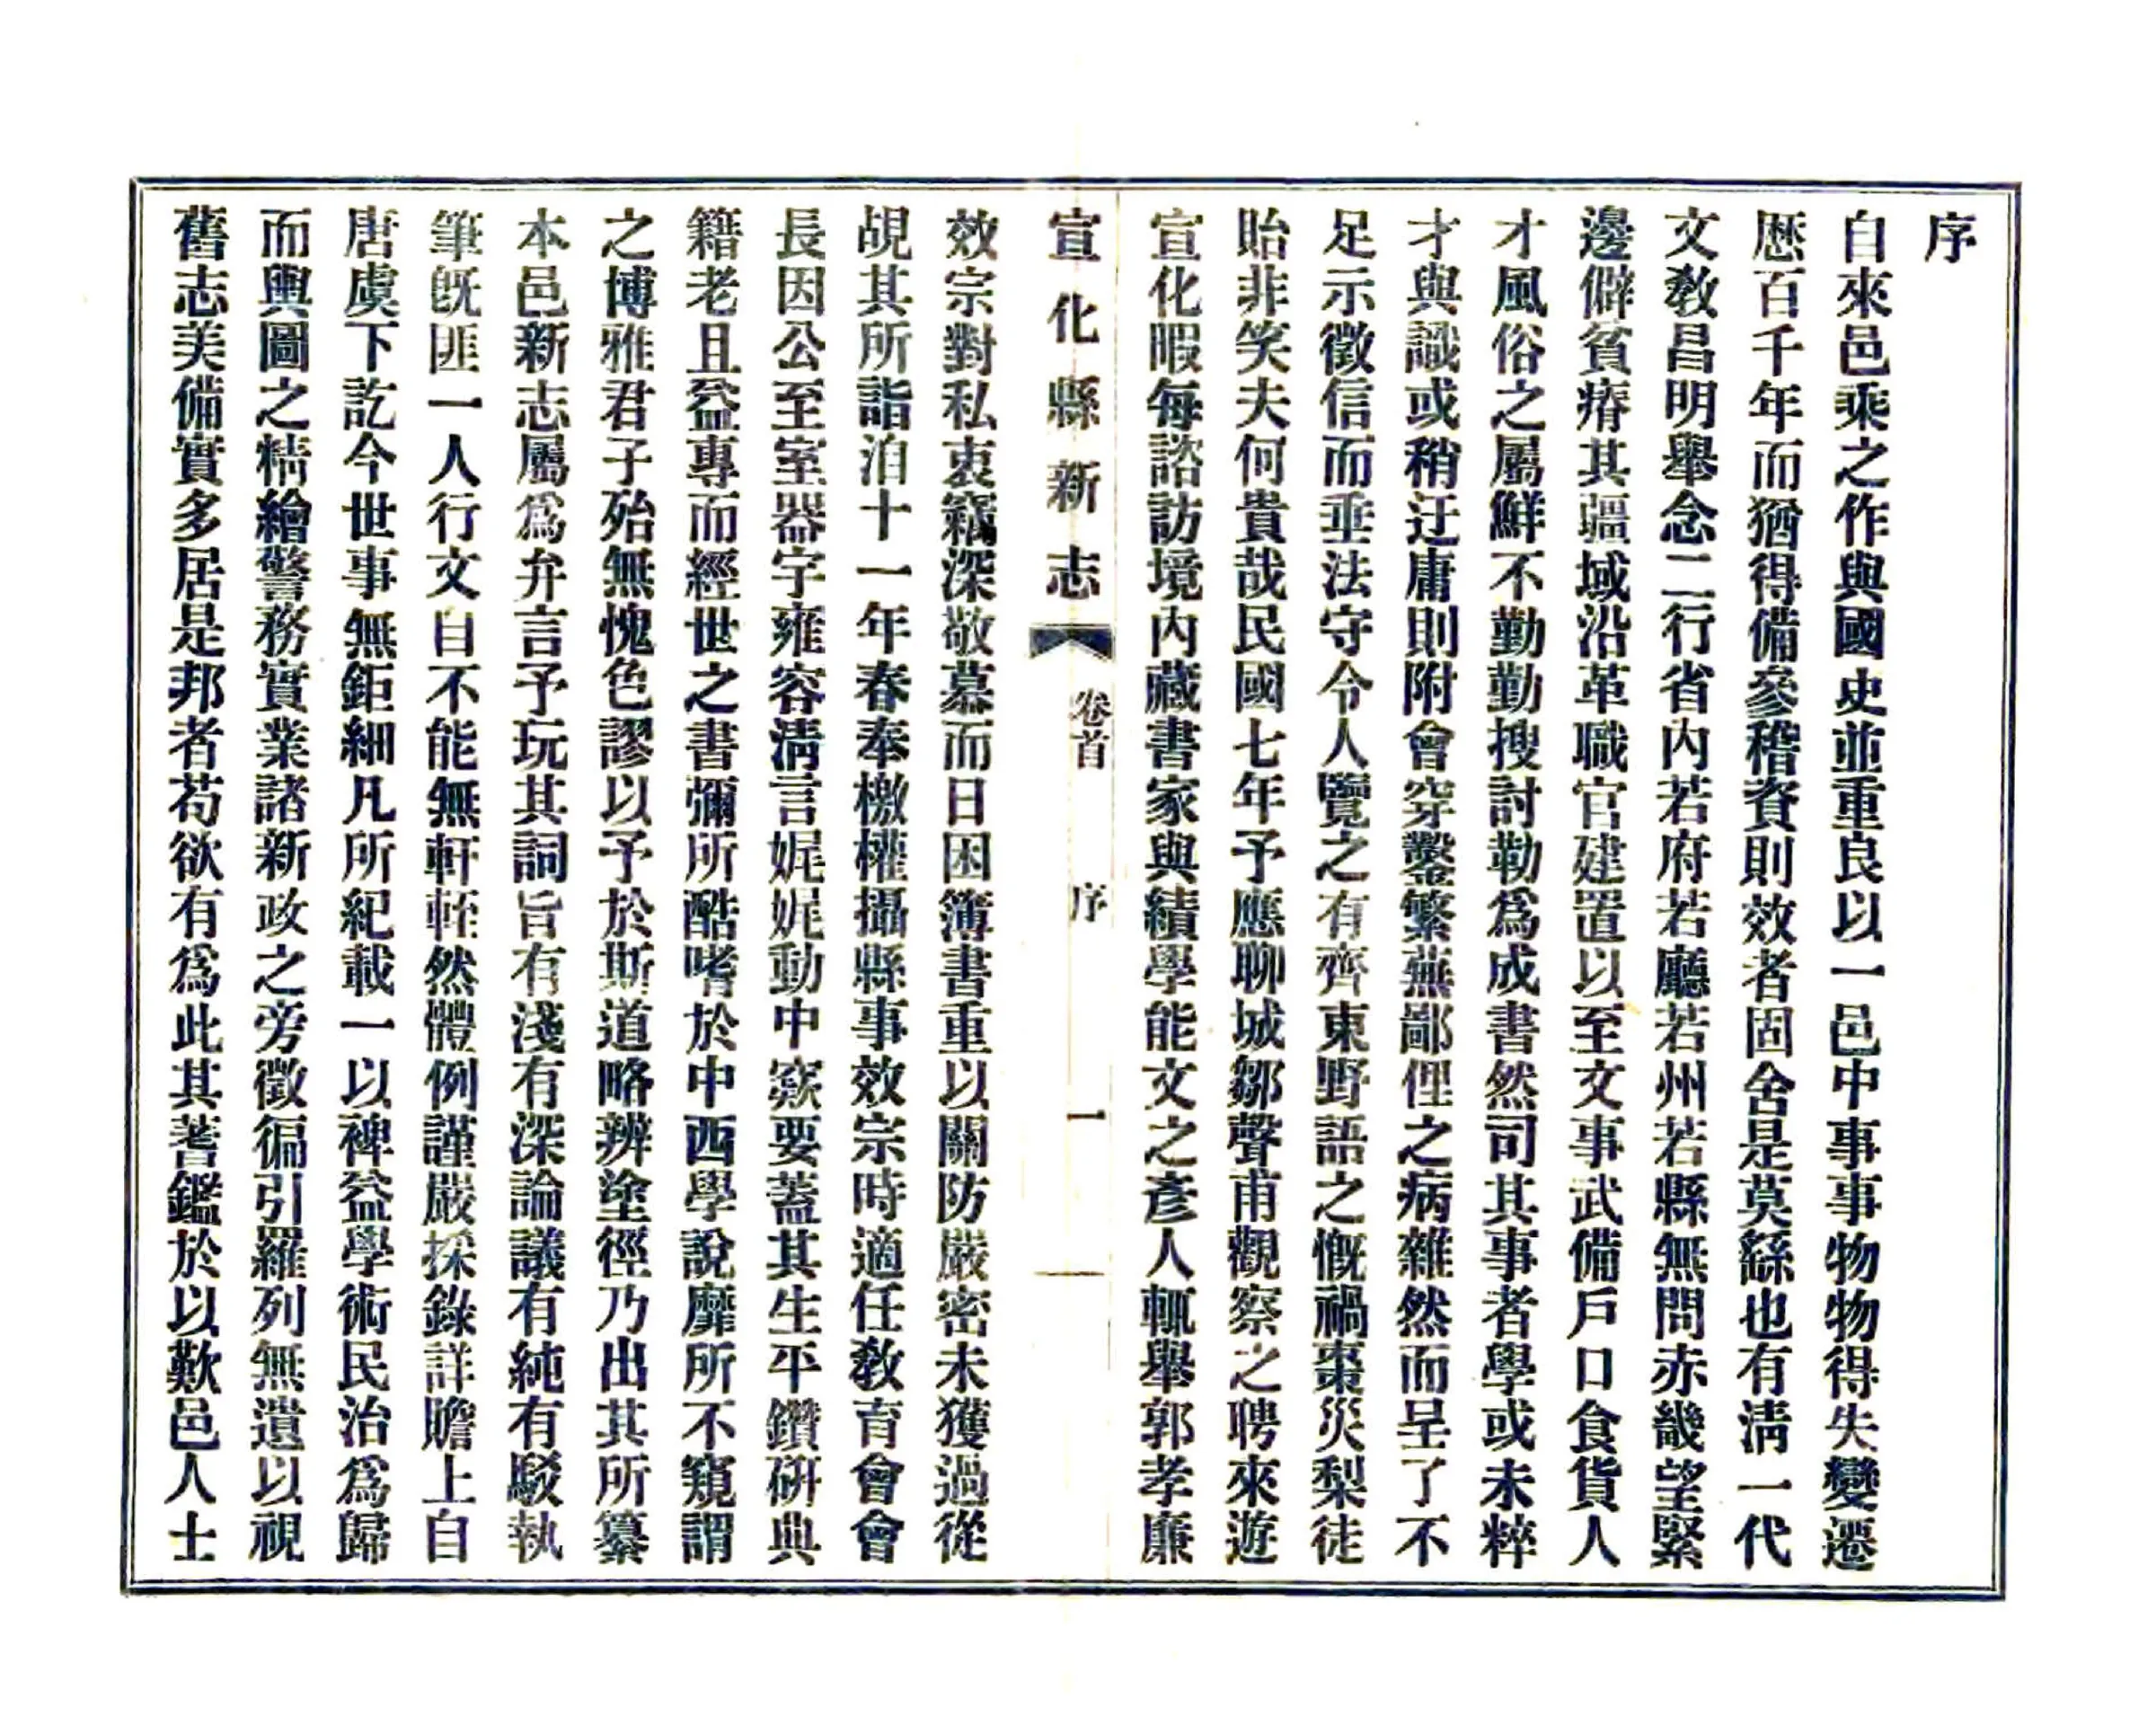 序
自來邑乘之作與國史並重良以一邑中事事物物得失變遷
歷百千年而猶得備參稽資則效者固舍是莫繇也有淸一代
文敎昌明舉念二行省內若府若廳若州若縣無問赤畿望緊
邊僻貧瘠其疆域沿革職官建置以至文事武備戶口食貨人
才風俗之屬鮮不勤勤搜討勒爲成書然司其事者學或未粹
才與識或稍迂庸則附會穿鑿繁蕪鄙俚之病雜然而呈了不
足示徵信而垂法守令人覽之有齊東野語之慨禍棗災梨徒
貽非笑夫何貴哉民國七年予應聊城鄒聲甫觀察之聘來遊
宣化暇每諮訪境內藏書家與績學能文之彥人輒舉郭孝廉
宣化縣新志 卷首 序 一
效宗對私衷竊深敬慕而日困簿書重以關防嚴密未獲過從
覘其所詣洎十一年春奉檄權攝縣事效宗時適任敎育會會
長因公至室器宇雍容淸言娓娓動中窾要蓋其生平鑽硏典
籍老且益專而經世之書彌所酷嗜於中西學說靡所不窺謂
之博雅君子殆無愧色謬以予於斯道略辨塗徑乃出其所纂
本邑新志屬爲弁言予玩其詞旨有淺有深論議有純有駁執
筆旣匪一人行文自不能無軒輊然體例謹嚴採錄詳贍上自
唐虞下訖今世事無鉅細凡所紀載一以裨益學術民治爲歸
而輿圖之精繪警務實業諸新政之旁徵徧引羅列無遺以視
舊志美備實多居是邦者苟欲有爲此其蓍鑑於以歎邑人士